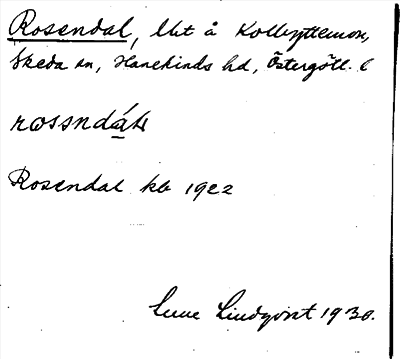 Rosendal, lht å Kolbyttemon,
Skeda sn, Hanekinds hd, Östergötl. l
Rosendal kb 1922
Sune Lindqvist 1930.